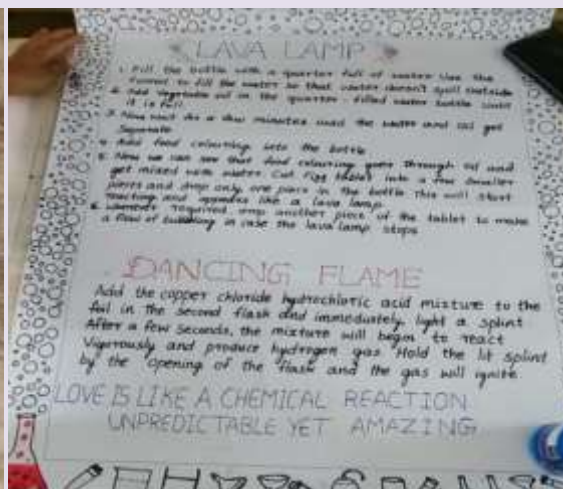 LAVA LAMP
1. Fill the bottle with a quarter full of water Use the
funnel to fill the water so that water doesn't spill outside
2. Add vegetable oil in the quarter-filled water bottle until
it is full
3. Now wait for a few minutes until the water and oil get
Separate
4. Add food colouring into the bottle
5. Now we can see that food colouring goes through oil and
get mixed with water Cut fizz tablet into a few smaller
pieces and drop only one piece in the bottle This will start
reacting and appears like a lava lamp
6. Whenever required, drop another piece of the tablet to make
a flow of bubbling in case the lava lamp stops
DANCING FLAME
Add the copper chloride hydrochloric acid mixture to the
foil in the second flask and immediately light a splint
After a few seconds, the mixture will begin to react
Vigorously and produce hydrogen gas Hold the lit splint
by the opening of the flask and the gas will ignite
LOVE IS LIKE A CHEMICAL REACTION
UNPREDICTABLE YET AMAZING